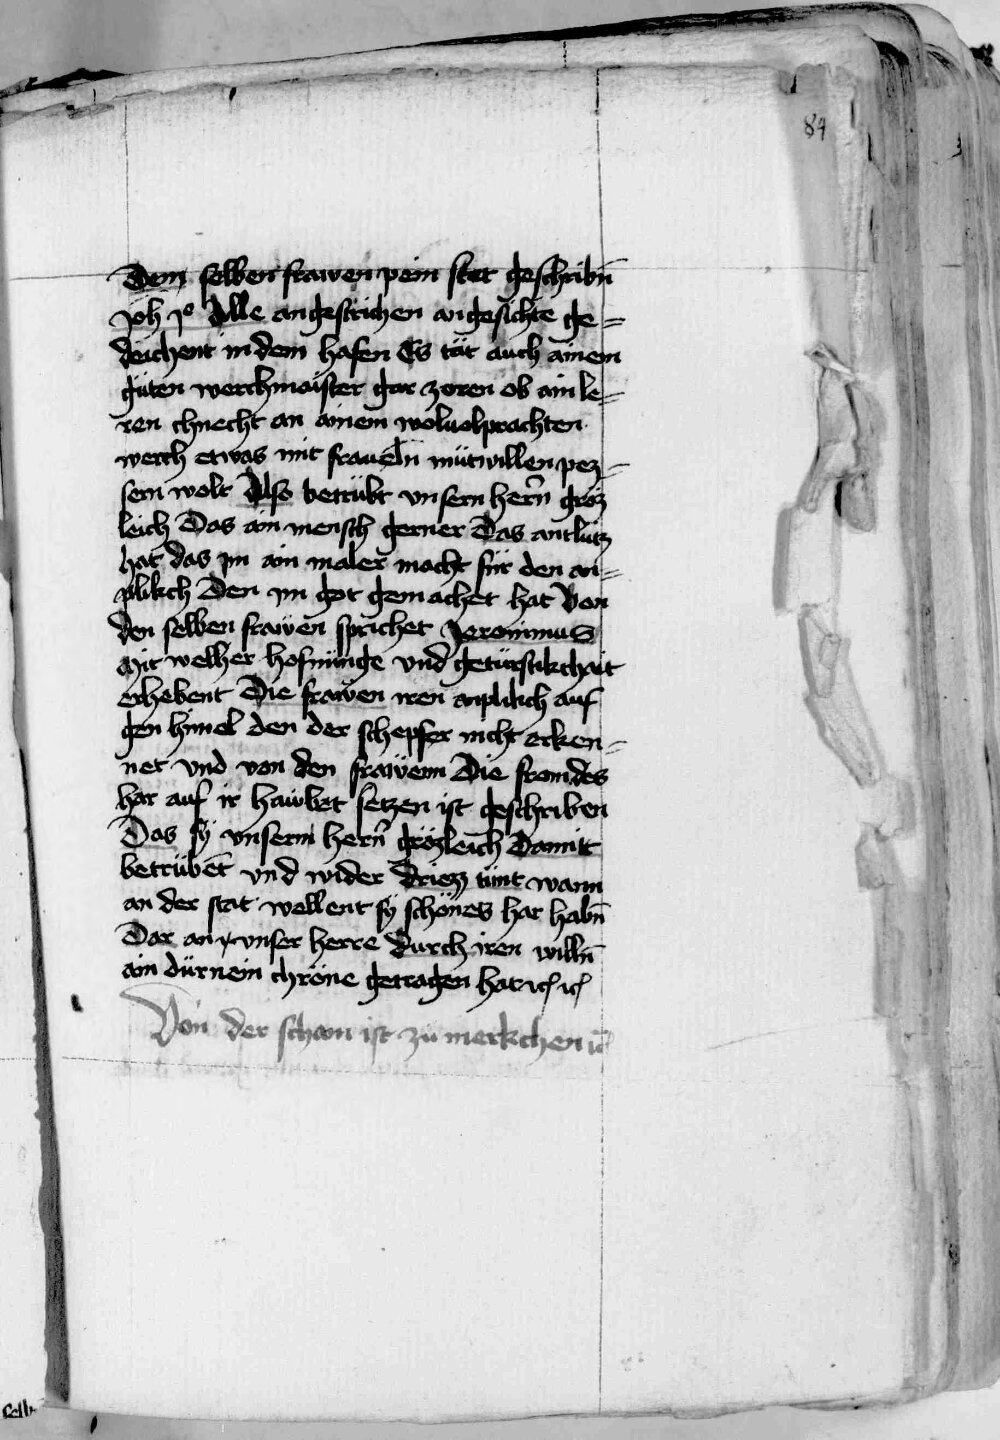 84
Dem selben frawen pein stet geschribn̄
Joh jo Alle angestrichen angesichte ge=
deichent in dem hafen Es tät auch ainem
gůten werchmaister gar zoren ob ain le=
ren chnecht an ainem woluolprachten
werch etwas mit fräueln mutwillen pez=
sern wolt Also betrübt vnsern hern̄ gröz
leich Das ain mensch gerner Das antlütz
hat das im ain maler macht für den an=
plikch Den im got gemachet hat Von
den selben frawen sprichet Jeronimus
Mit welher hofnunge vnd getürstikchait
erhebent Die frawen iren anplikch auf
gen himel den der schepfer nicht erken=
net vnd von den frawenn Die fromdes
har auf ir hawbet setzen ist geschriben
Das sÿ vnserm hern̄ grözleich Damit
betrübent vnd wider driezz tünt wann
an der stat wellent sÿ schönes har habn̄
Dar an vnser herre durch iren willn̄
ain dürnein chröne getragen hat ⁊c ⁊c
Von der scham ist zu merkchen ⁊c